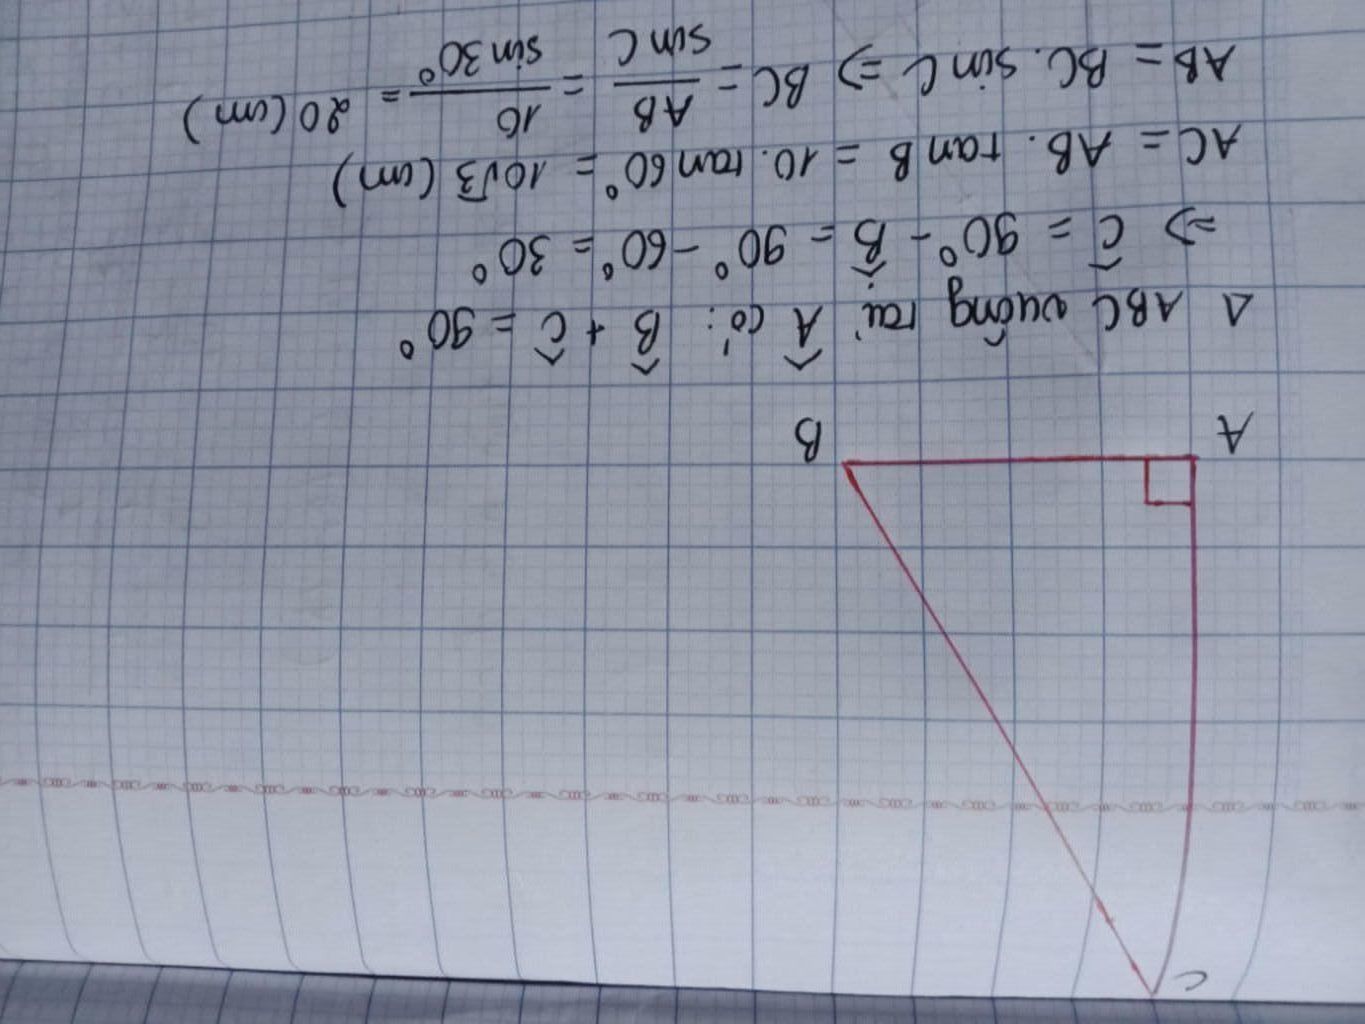 C
A B
Δ ABC vuông tại Â có: B̂ + Ĉ = 90°
=> Ĉ = 90° - B̂ = 90° - 60° = 30°
AC = AB. tan B = 10. tan 60° = 10√3 (cm)
AB = BC. sin C => BC = AB / sin C = 10 / sin 30° = 20 (cm)